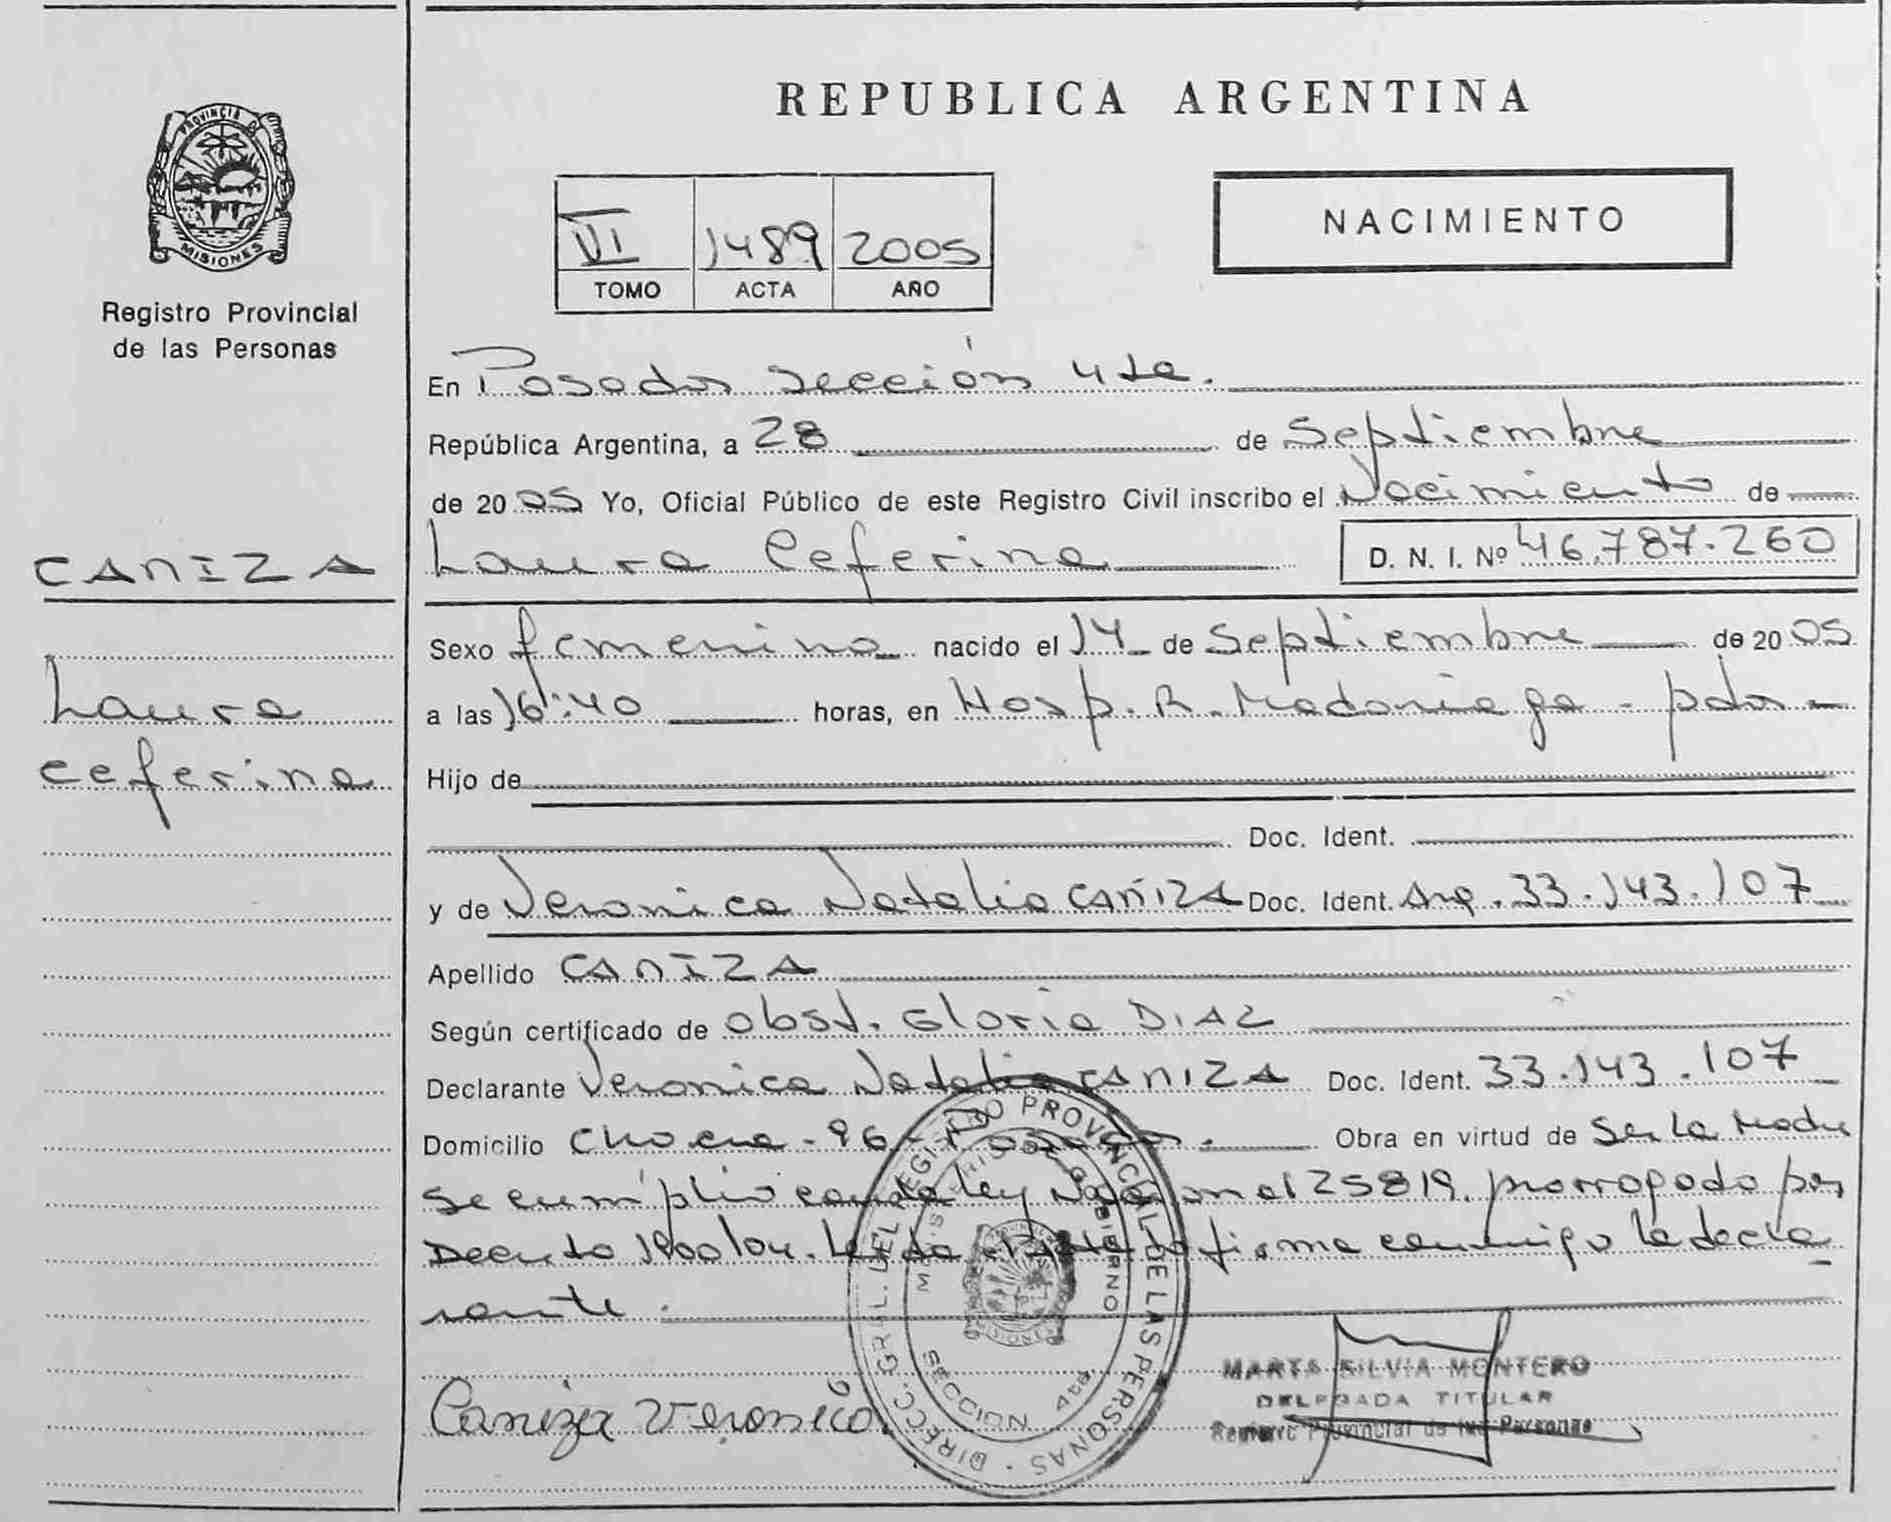 PROVINCIA DE
MISIONES
Registro Provincial
de las Personas
CANIZA
Laura
Ceferina
REPUBLICA ARGENTINA
VI 1489 2005
TOMO ACTA AÑO
NACIMIENTO
En Posadas sección 4ta.
República Argentina, a 28 de Septiembre
de 2005 Yo, Oficial Público de este Registro Civil inscribo el Nacimiento de
Laura Ceferina D. N. I. Nº 46.787.260
Sexo femenino nacido el 14 de Septiembre de 2005
a las 16:40 horas, en Hosp. R. Madariaga - pdas -
Hijo de
Doc. Ident.
y de Veronica Natalia CAÑIZA Doc. Ident. Arg. 33.143.107
Apellido CANIZA
Según certificado de obst. Gloria DIAZ
Declarante Veronica Natalia CANIZA Doc. Ident. 33.143.107
Domicilio - 96 - Posadas. Obra en virtud de Ser la Madre
se cumplio con la ley Nacional 25819. prorrogado por
Decreto 1900/04. Leida el Acta firma conmigo la decla
rante.
DIRECC. GRAL. DEL REGISTRO PROVINCIAL DE LAS PERSONAS
GOBIERNO
SECCION 4ta
Caniza Veronica
MARTA SILVIA MONTERO
DELEGADA TITULAR
Registro Provincial de las Personas